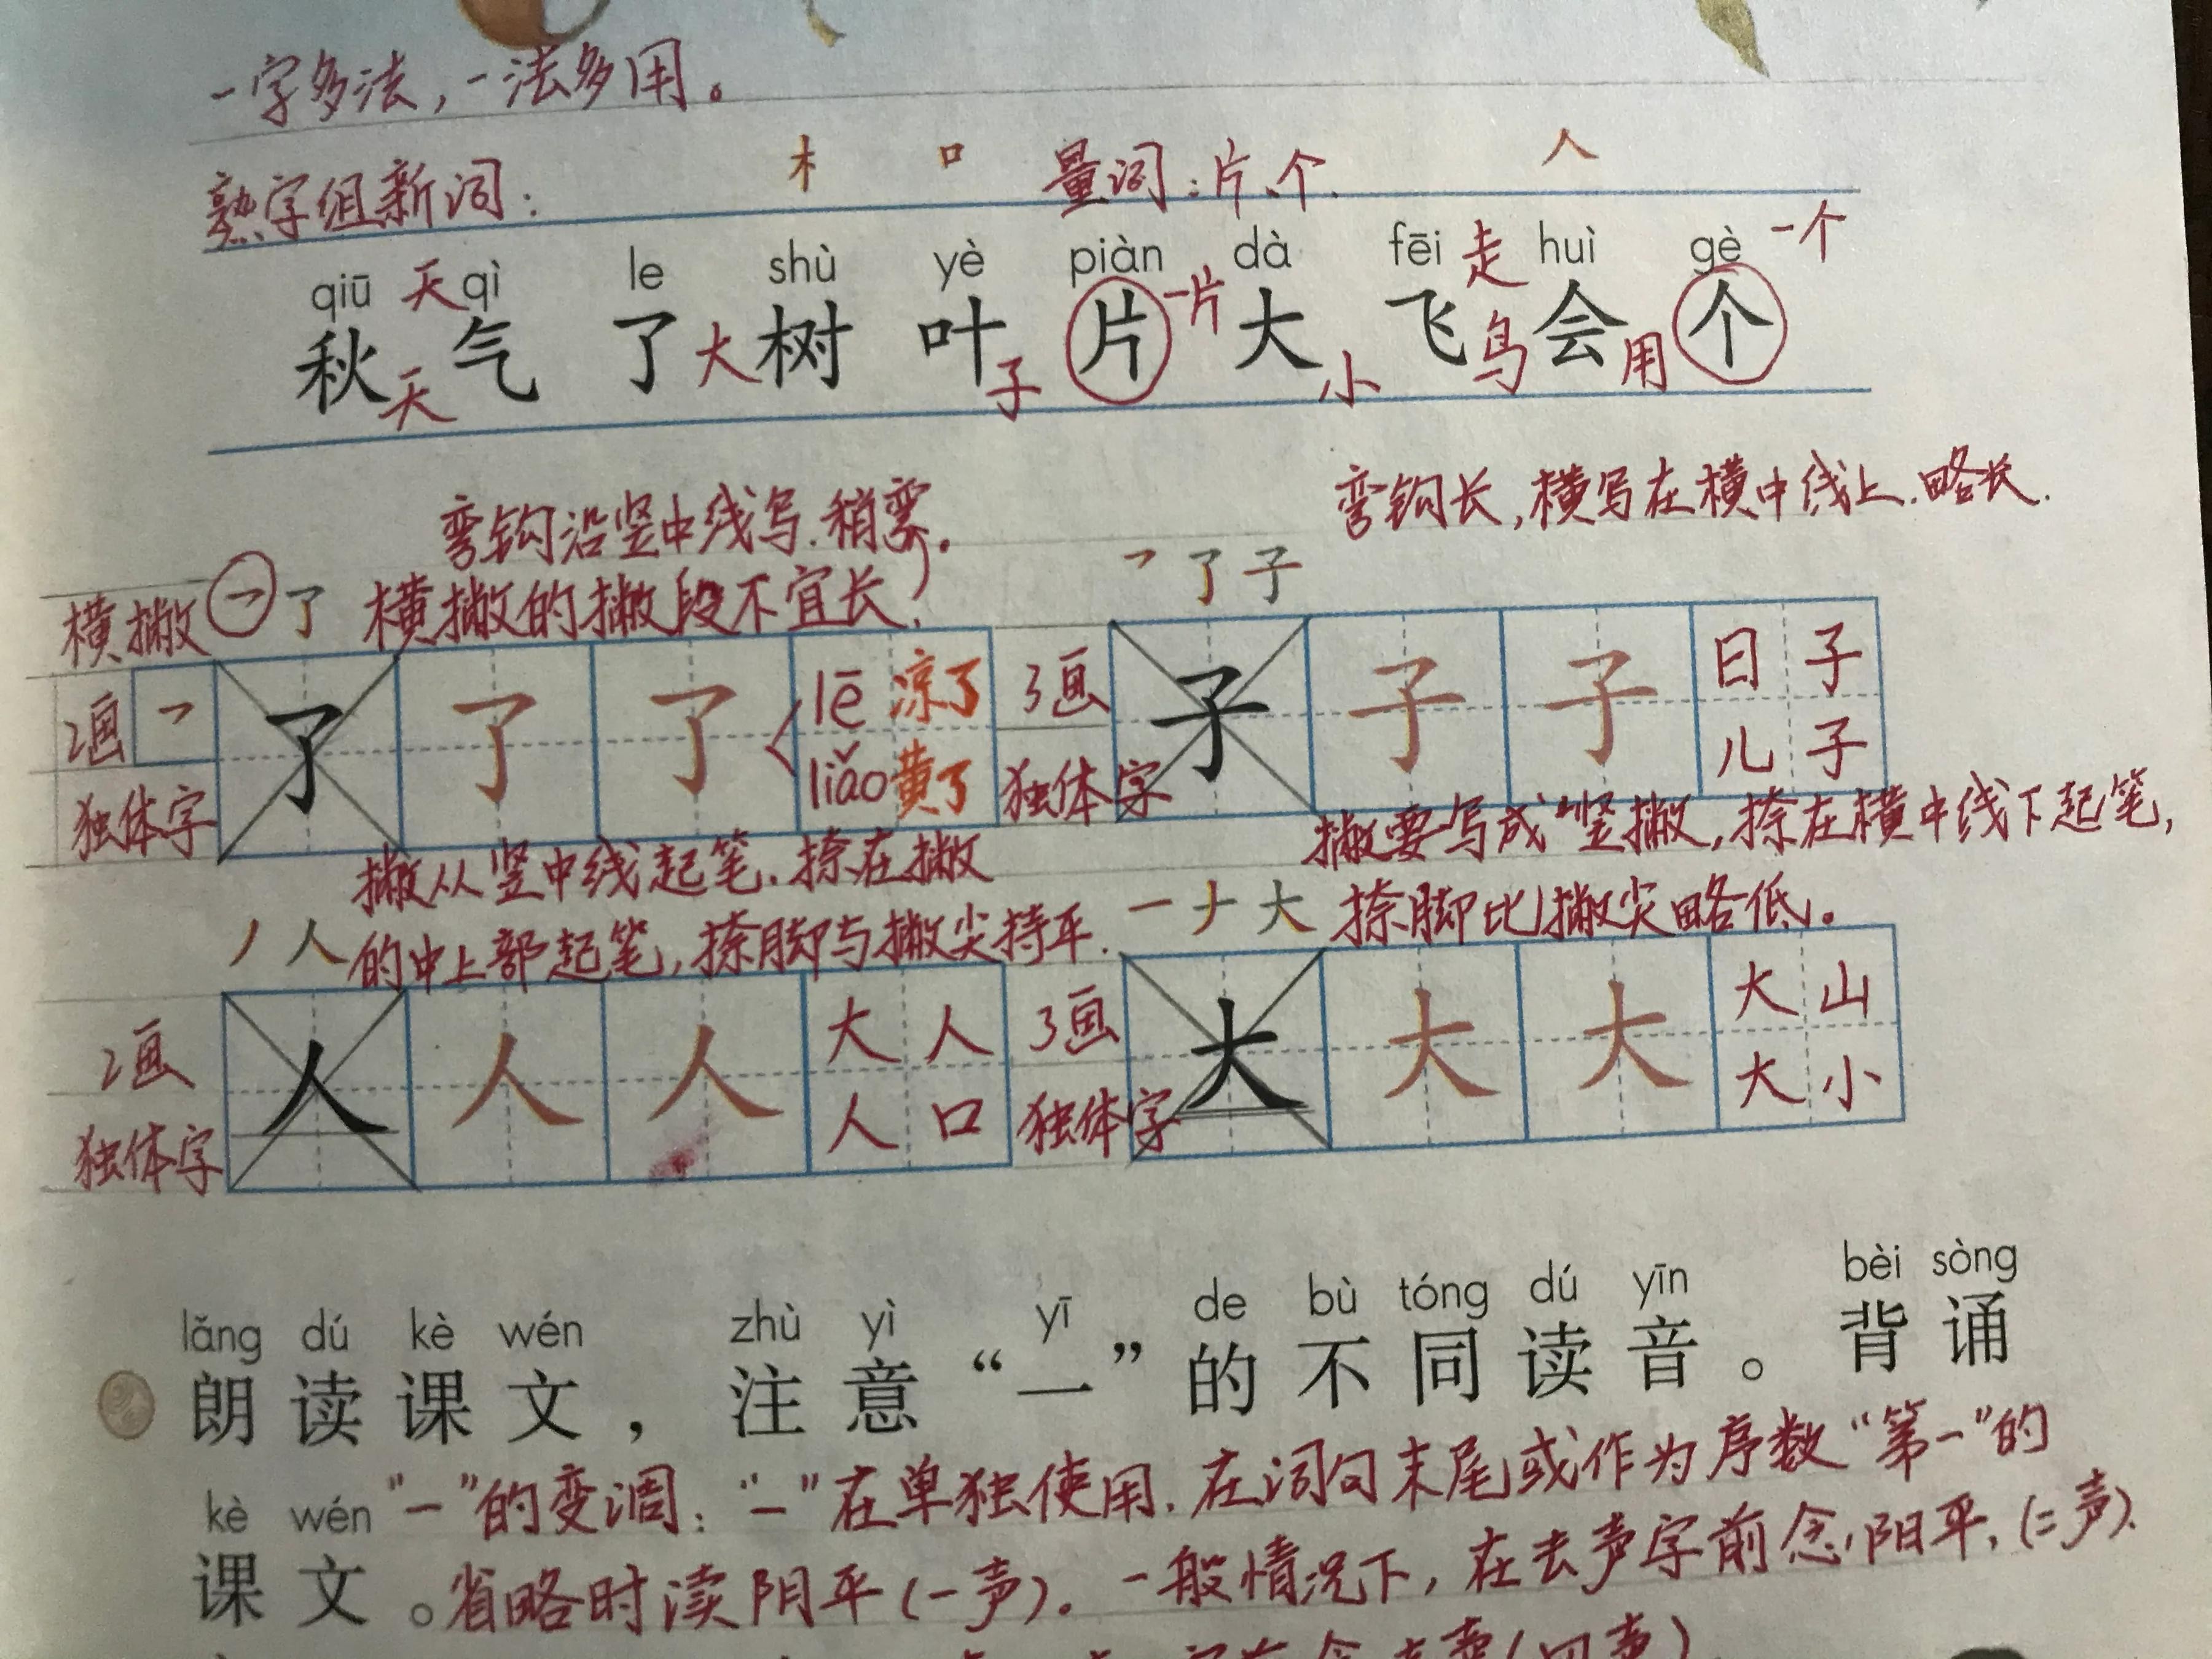 一字多法，一法多用。
熟字组新词：
木 口 量词：片、个. 人
qiū 天 qì le shù yè piàn dà fēi 走 huì gè 一个
秋 天 气 了 大 树 叶 子 片 一片 大 小 飞 鸟 会 用 个
弯钩沿竖中线写.稍弯. 弯钩长,横写在横中线上.略长.
横撇 ㇇ 了 横撇的撇段不宜长. ㇇ 了 子
2画 ㇇ 了 了 了 lē 凉了 3画 子 子 子 日子
独体字 liǎo 黄了 独体字 儿子
撇从竖中线起笔.捺在撇 撇要写成“竖撇,捺在横中线下起笔,
丿 人 的中上部起笔,捺脚与撇尖持平. 一 ナ 大 捺脚比撇尖略低。
2画 人 人 人 大人 3画 大 大 大 大山
独体字 人口 独体字 大小
lǎng dú kè wén zhù yì yī de bù tóng dú yīn bèi sòng
朗读课文，注意“一”的不同读音。背诵
kè wén “一”的变调：“一”在单独使用.在词句末尾或作为序数“第一”的
课文。省略时读阴平(一声)。一般情况下，在去声字前念阳平,(二声).
(四声)